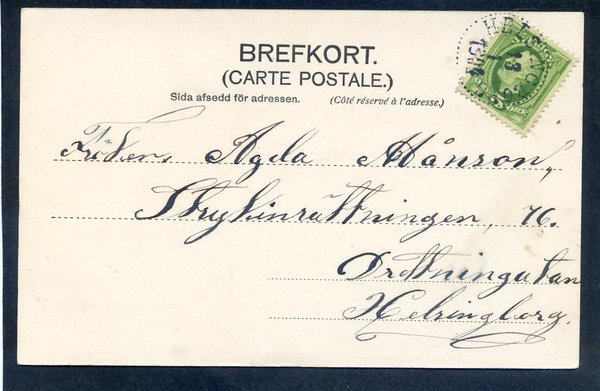 BREFKORT.
(CARTE POSTALE.)
Sida afsedd för adressen. (Côté réservé à l'adresse.)
HELSINGBORG
13
1
1904
Fröken Agda Månson,
Strykinrättningen, 76.
Drottningatan
Helsingborg.